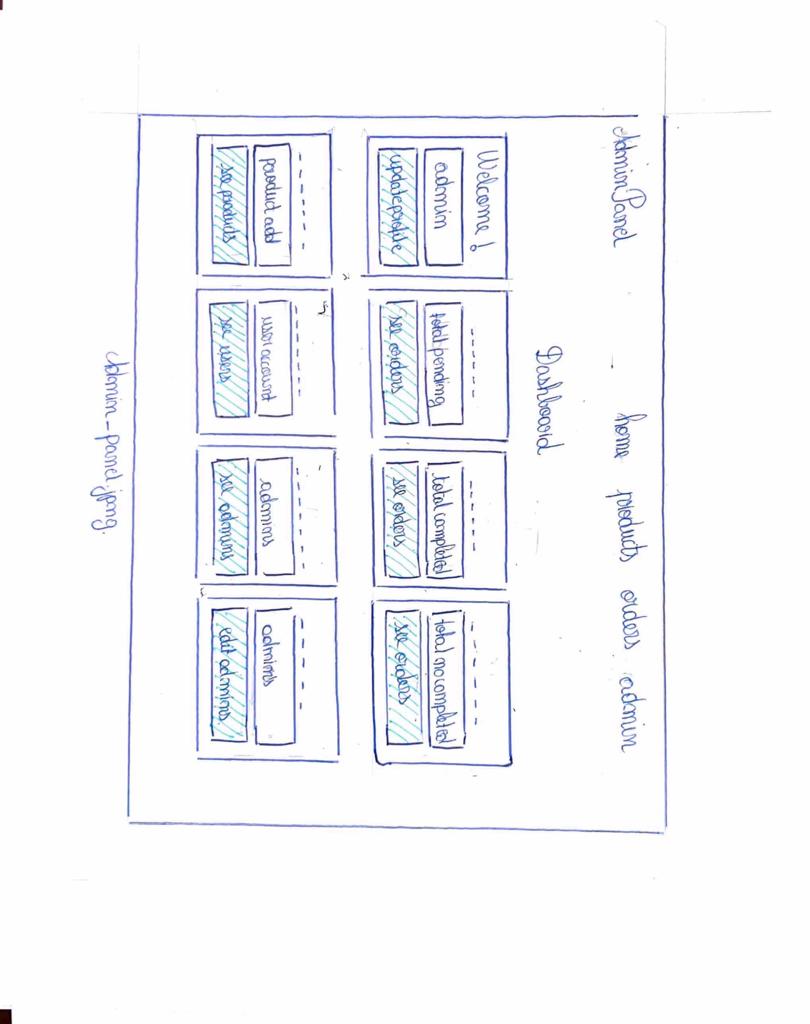 Admin Panel home products orders admin
Dashboard
Welcome!
admin
update profile
total pending
see orders
total completed
see orders
total no completed
see orders
product add
see products
user account
see users
admins
see admins
admins
edit admins
Admin-panel.jpng.